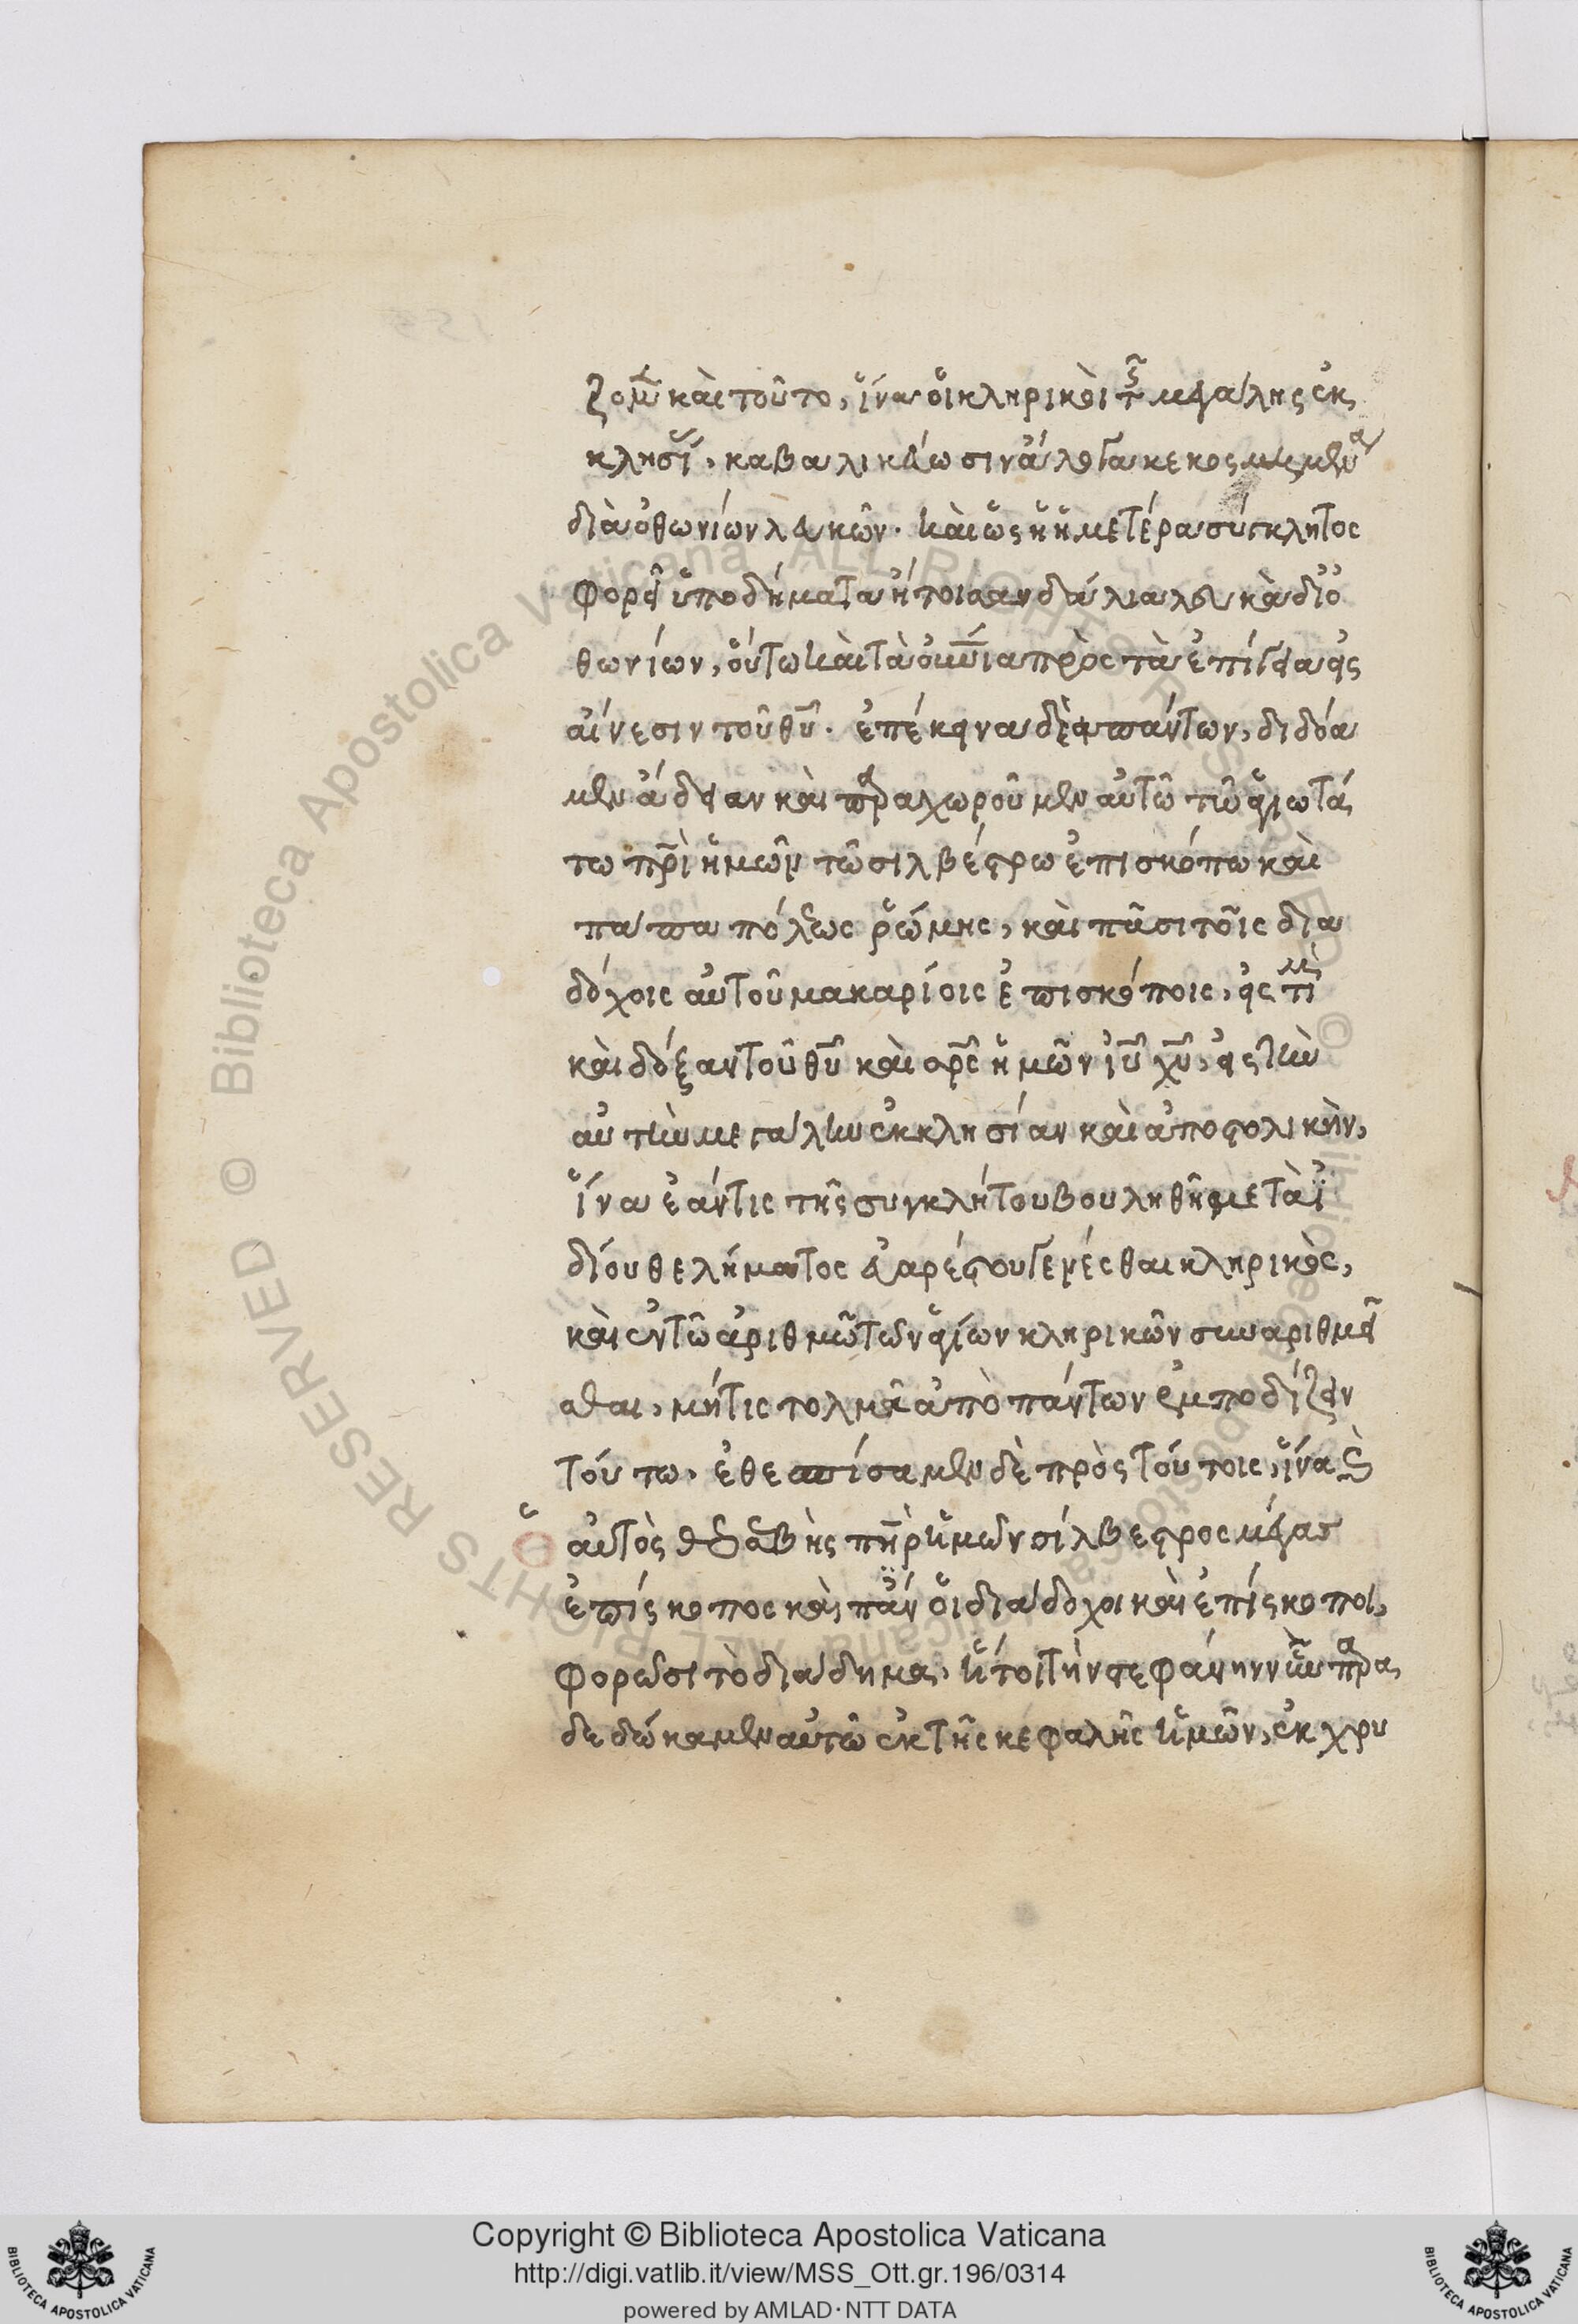 ζομεν καὶ τοῦτο, ἵνα οἱ κληρικοὶ τῆς μεγάλης ἐκ
κλησίας, καβαλικεύωσιν ἄλογα κεκοσμημένα
διὰ ὀθωνίων λευκῶν. καὶ ὡς ἡ ἡμετέρα σύγκλητος
φορεῖ ὑποδήματα ἤτοι σανδάλια λευκὰ δι' ὀ
θωνίων, οὕτω καὶ τὰ οὐράνια πρὸς τὰ ἐπίγεια εἰς
αἴνεσιν τοῦ θυ. ἐπέκεινα δὲ πάντων, δίδο
μεν ἄδειαν καὶ παραχωροῦμεν αὐτῶ τῶ ἁγιωτά
τω πρὶ ἡμῶν τῶ σιλβέστρω ἐπισκόπω καὶ
πάπα πόλεως ῥώμης, καὶ πᾶσι τοῖς δια
δόχοις αὐτοῦ μακαρίοις ἐπισκόποις, εἰς τιμὴν
καὶ δόξαν τοῦ θυ καὶ σρς ἡμῶν ιυ χυ, εἰς τὴν
αὐτὴν μεγάλην ἐκκλησίαν καὶ ἀποστολικὴν,
ἵνα ἐάν τις τῆς συγκλήτου βουληθῆ μετὰ ἰ
δίου θελήματος εὐαρέστου γενέσθαι κληρικὸς,
καὶ ἐν τῶ ἀριθμῶ τῶν ἁγίων κληρικῶν συναριθμεῖ
σθαι, μήτις τολμᾶ ἀπὸ πάντων ἐμποδίζειν
τούτω. ἐθεσπίσαμεν δὲ πρὸς τούτοις, ἵνα καὶ
ὁ αὐτὸς εὐσεβὴς πηρ ἡμῶν σίλβεστρος μέγας
ἐπίσκοπος καὶ πάντες οἱ διάδοχοι καὶ ἐπίσκοποι,
φορῶσι τὸ διάδημα, ἤτοι τὴν στεφάνην ἣν παρα
δεδώκαμεν αὐτῶ ἐκ τῆς κεφαλῆς ἡμῶν, ἐκ χρυ
Copyright © Biblioteca Apostolica Vaticana
http://digi.vatlib.it/view/MSS_Ott.gr.196/0314
powered by AMLAD·NTT DATA